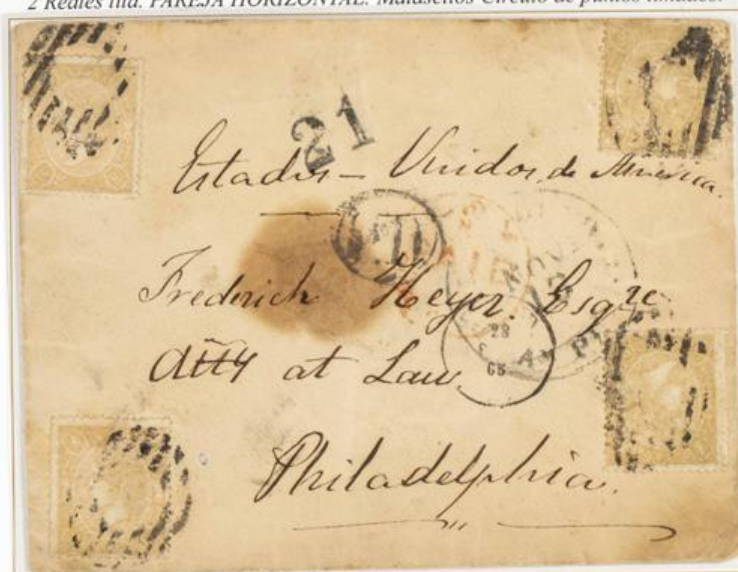 2 Reales lila. PAREJA HORIZONTAL. Matasellos Círculo de puntos
21
Estados - Unidos de America.
Frederick Heyer. Esqre
Atty at Law
28
65
Philadelphia.